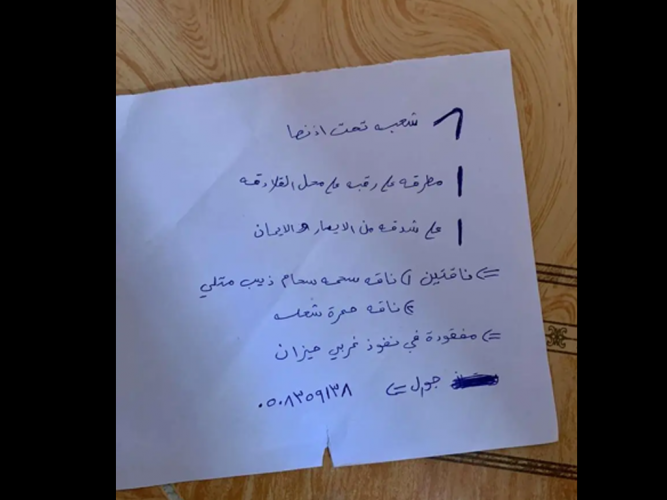 شعبه تحت اذنها
مطرقه على رقبه على محل القلادقه
على شدقه من الايسار والايمان
= ناقتين ١) ناقه سحمه سحام ذيب متلي
٢) ناقه حمرة شعله
= مفقودة في نفوذ غربي ميزان
جوال = ٠٥٠٨٣٥٩١٣٨